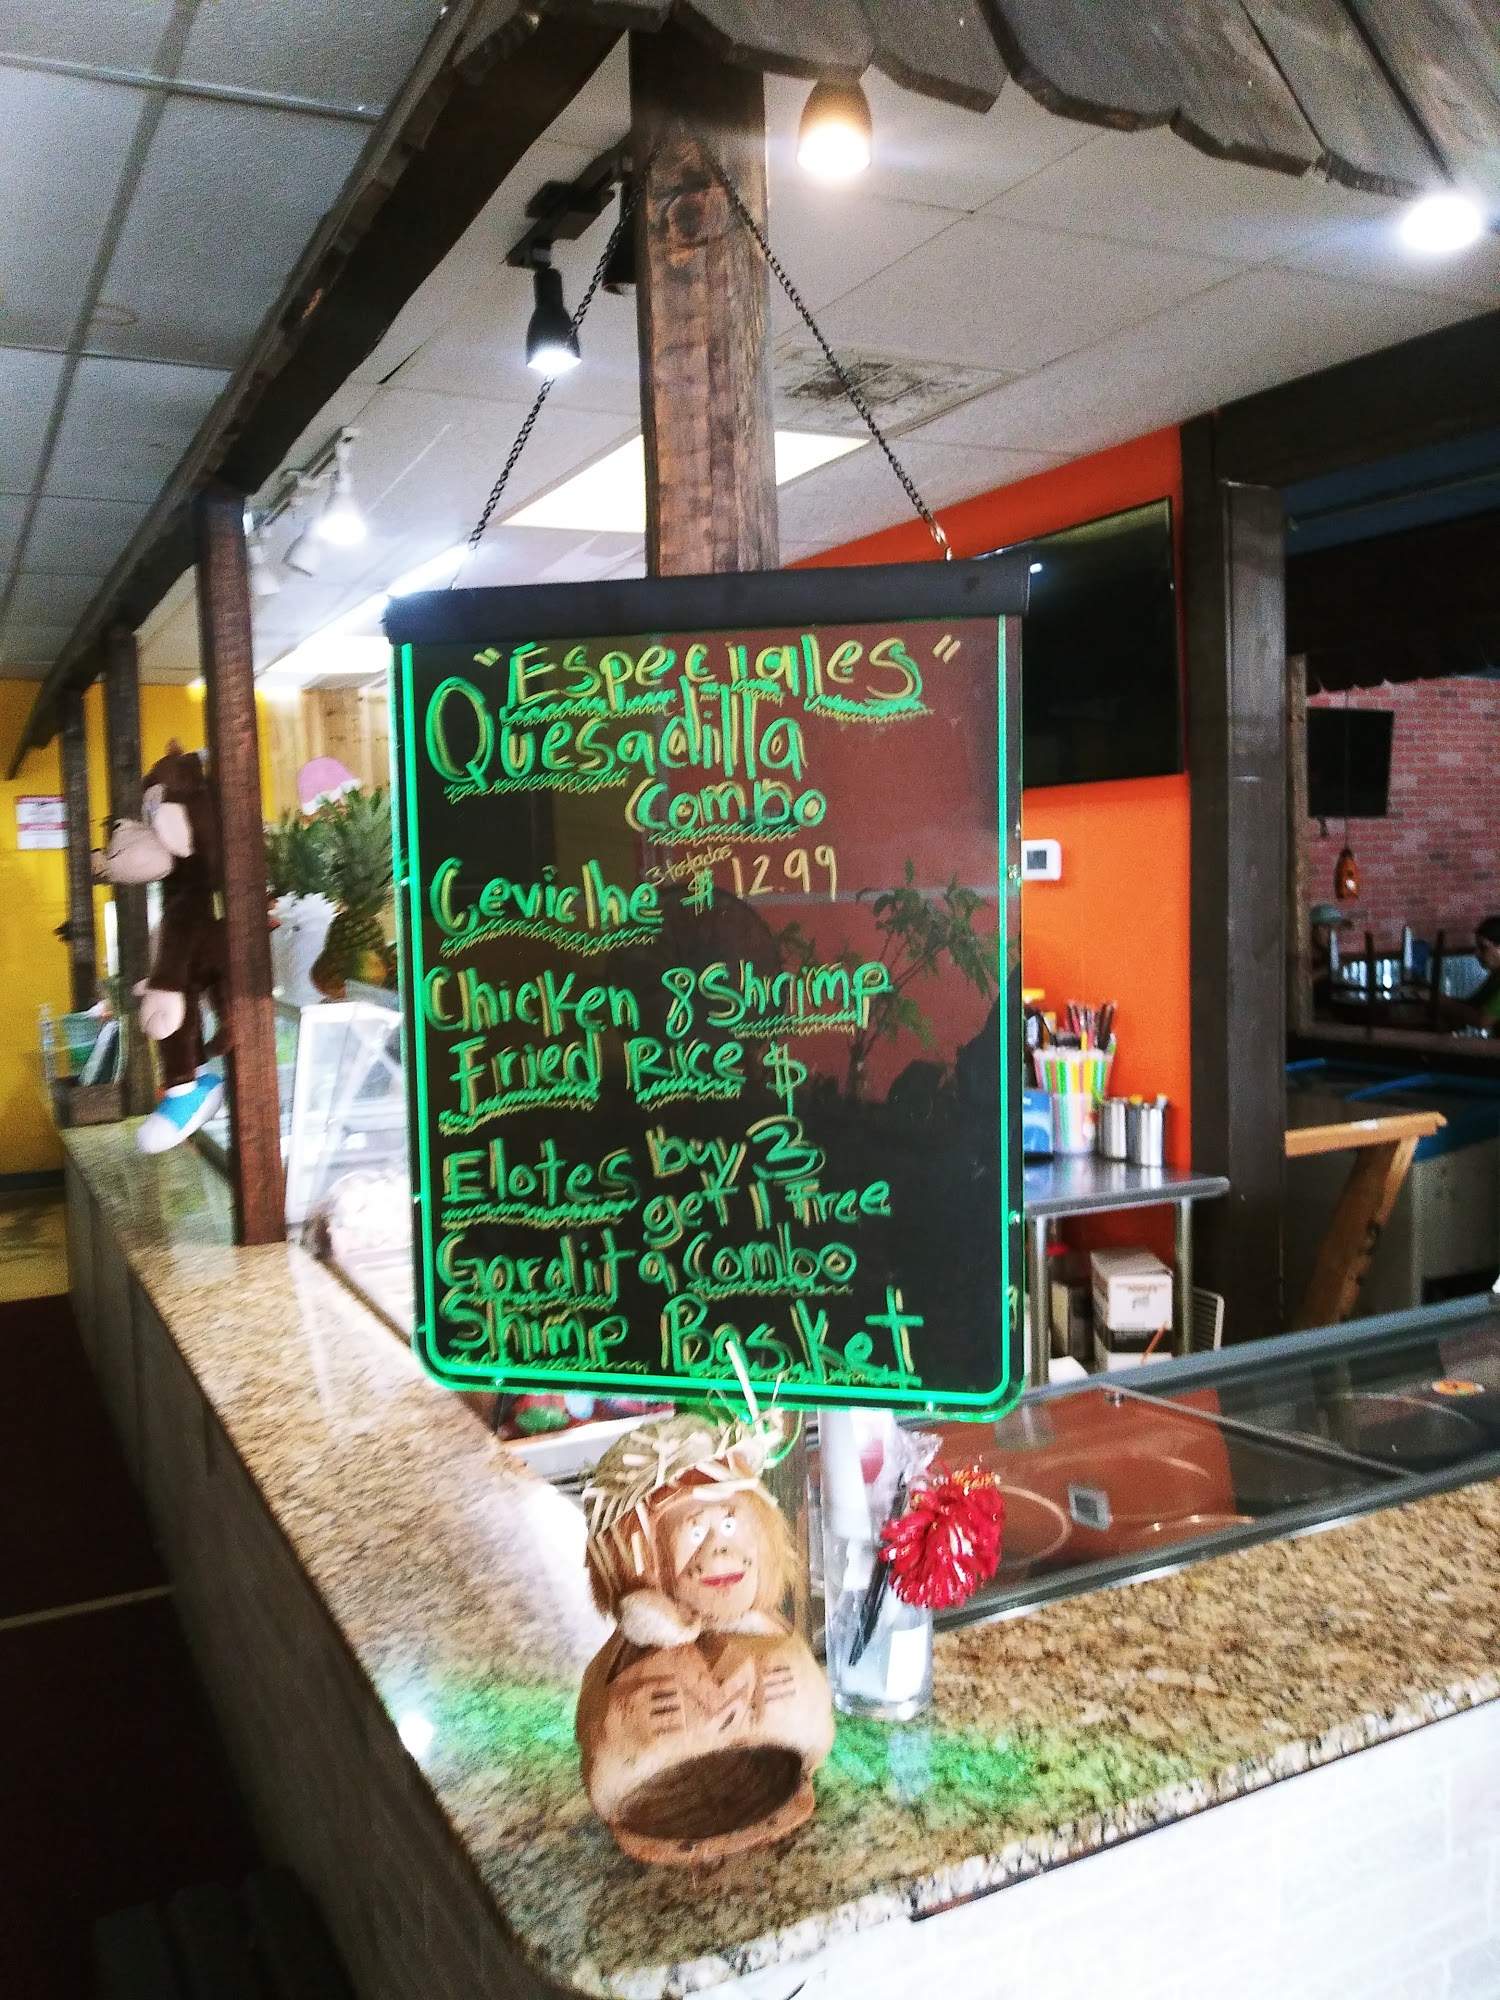 "Especiales"
Quesadilla
Combo
Ceviche 3 tostadas $12.99
Chicken & Shrimp
Fried Rice $
Elotes buy 3
get 1 Free
Gordita Combo
Shimp Basket